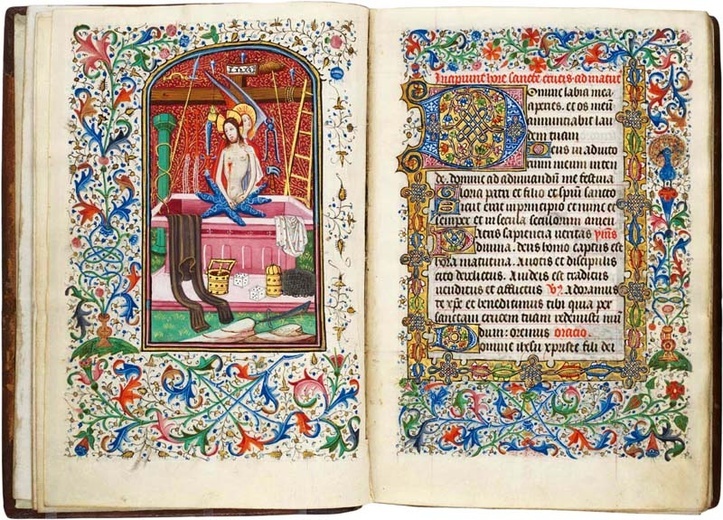 INRI
Incipiunt hore sancte crucis ad matuti
Domine labia mea
aperies. et os meū
annuntiabit lau
dem tuam
Deus in adiuto
rium meum inten
de. domine ad adiuuandū me festina
Gloria patri et filio et spūi sancto
sicut erat in principio et nunc et
semper et in secula seculorum amen
Patris sapientia veritas
diuina. deus homo captus est
hora matutina. A notis et discipulis
cito derelictus. A iudeis est traditus
uenditus et afflictus V. Adoramus
te xpē et benedicimus tibi quia per
sanctam crucem tuam redemisti mū
dum: oremus oracio.
Domine iesu xpriste fili dei